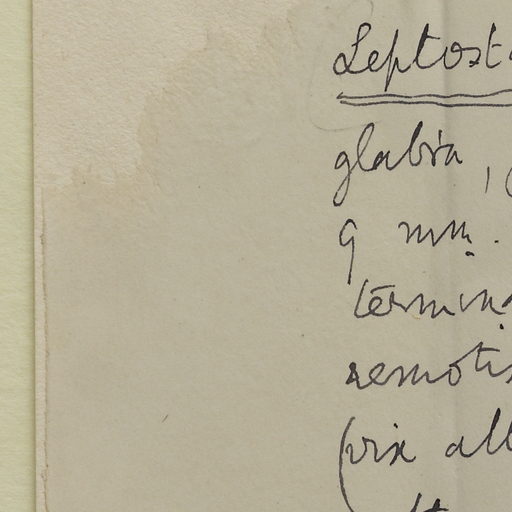 Leptost
glabra, (
9 mm.
termin
remotis
(vix alb